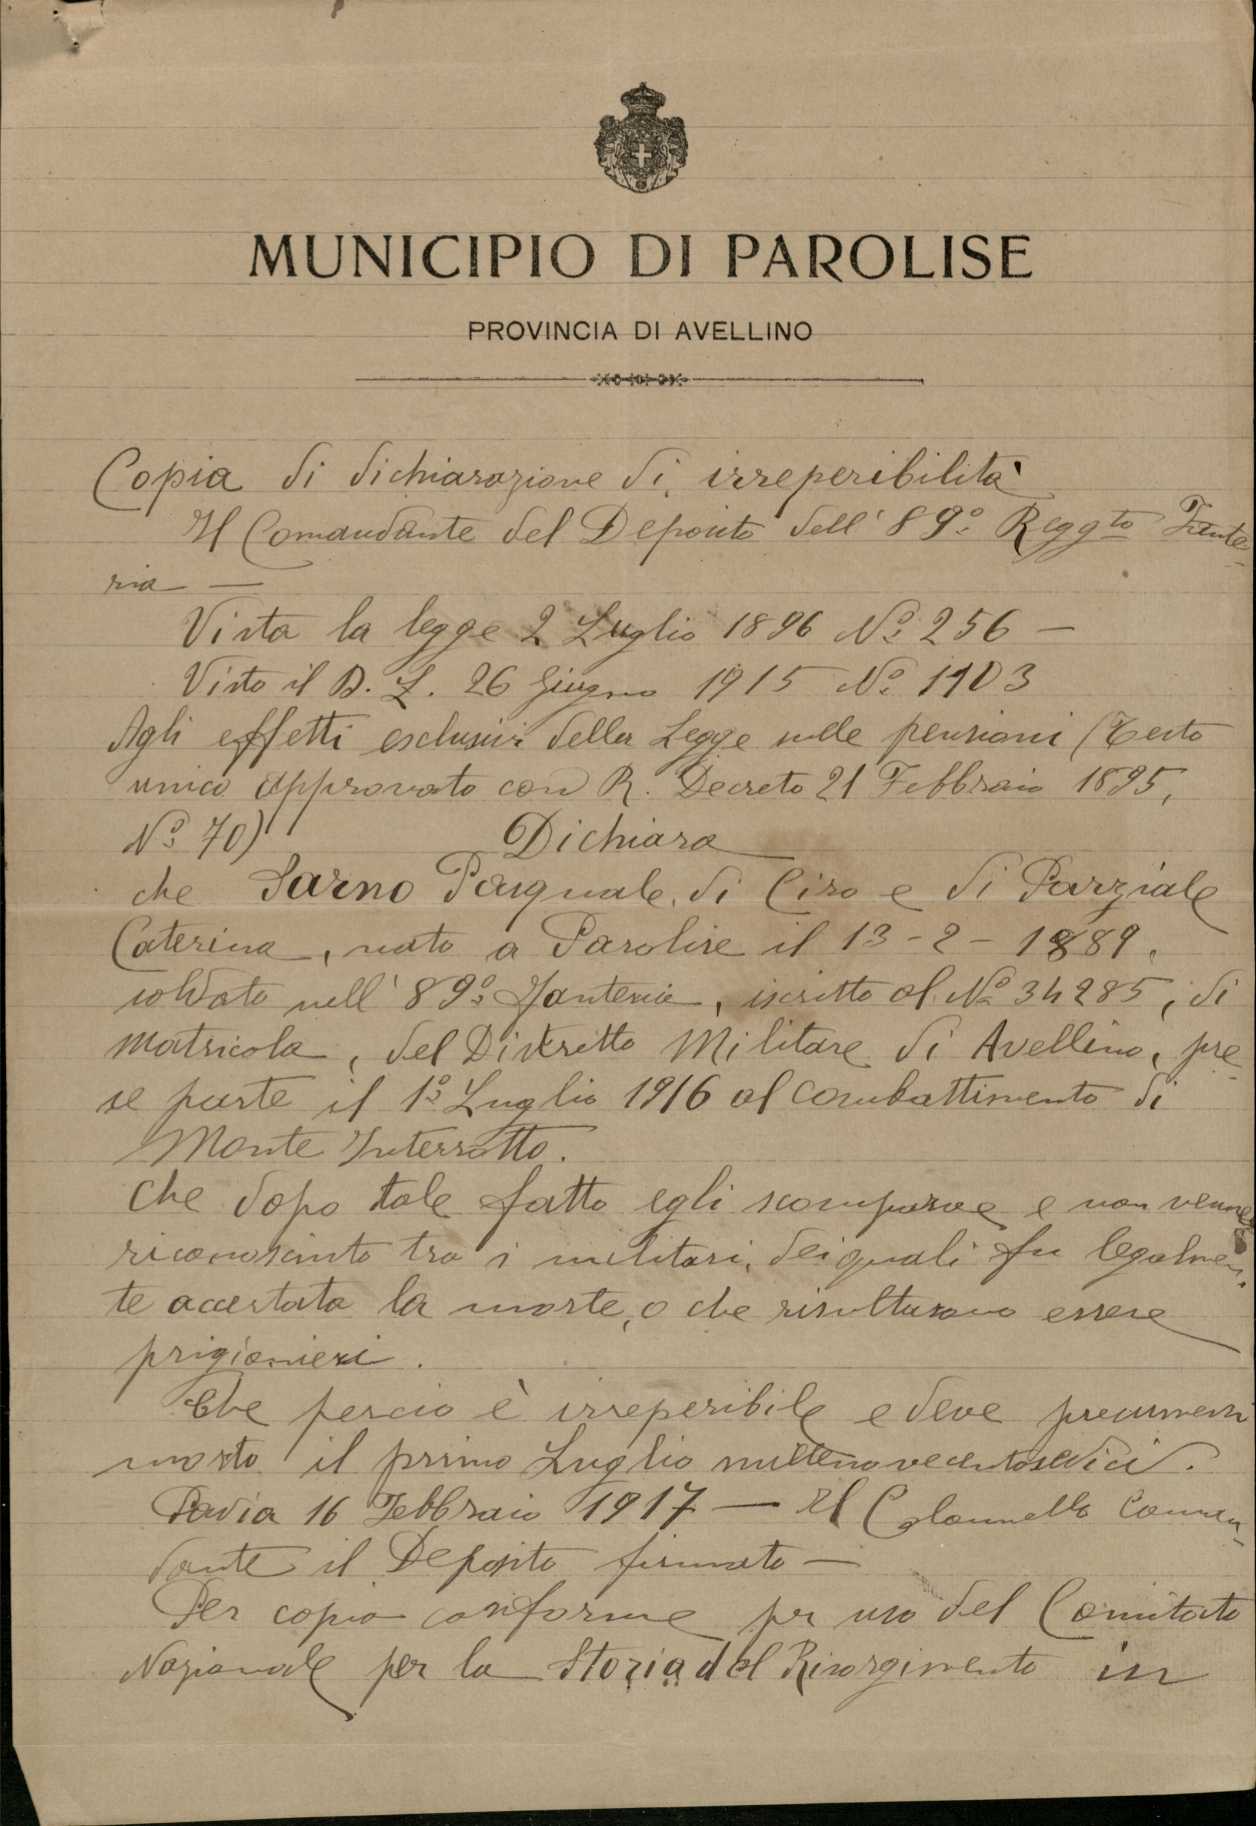 MUNICIPIO DI PAROLISE
PROVINCIA DI AVELLINO
Copia di dichiarazione di irreperibilità
Il Comandante del Deposito dell' 89º Reggto Fante-
ria —
Vista la legge 2 Luglio 1896 Nº 256 —
Visto il D. L. 26 Giugno 1915 Nº 1103
Agli effetti esclusivi della Legge sulle pensioni (Testo
unico approvato con R. Decreto 21 Febbraio 1895,
Nº 70) Dichiara
che Sarno Pasquale, di Ciro e di Parziale
Caterina, nato a Parolise il 13-2-1889,
soldato nell' 89º Fanteria, iscritto al Nº 34285, di
matricola, del Distretto Militare di Avellino, pre-
se parte il 1º Luglio 1916 al combattimento di
Monte Interrotto.
Che dopo tale fatto egli scomparve e non venne
riconosciuto tra i militari, dei quali fu legalmen-
te accertata la morte, o che risultarono essere
prigionieri.
Che perciò è irreperibile e deve presumersi
morto il primo Luglio millenovecentosedici.
Pavia 16 Febbraio 1917 — Il Colonnello Coman-
dante il Deposito firmato —
Per copia conforme per uso del Comitato
Nazionale per la Storia del Risorgimento in